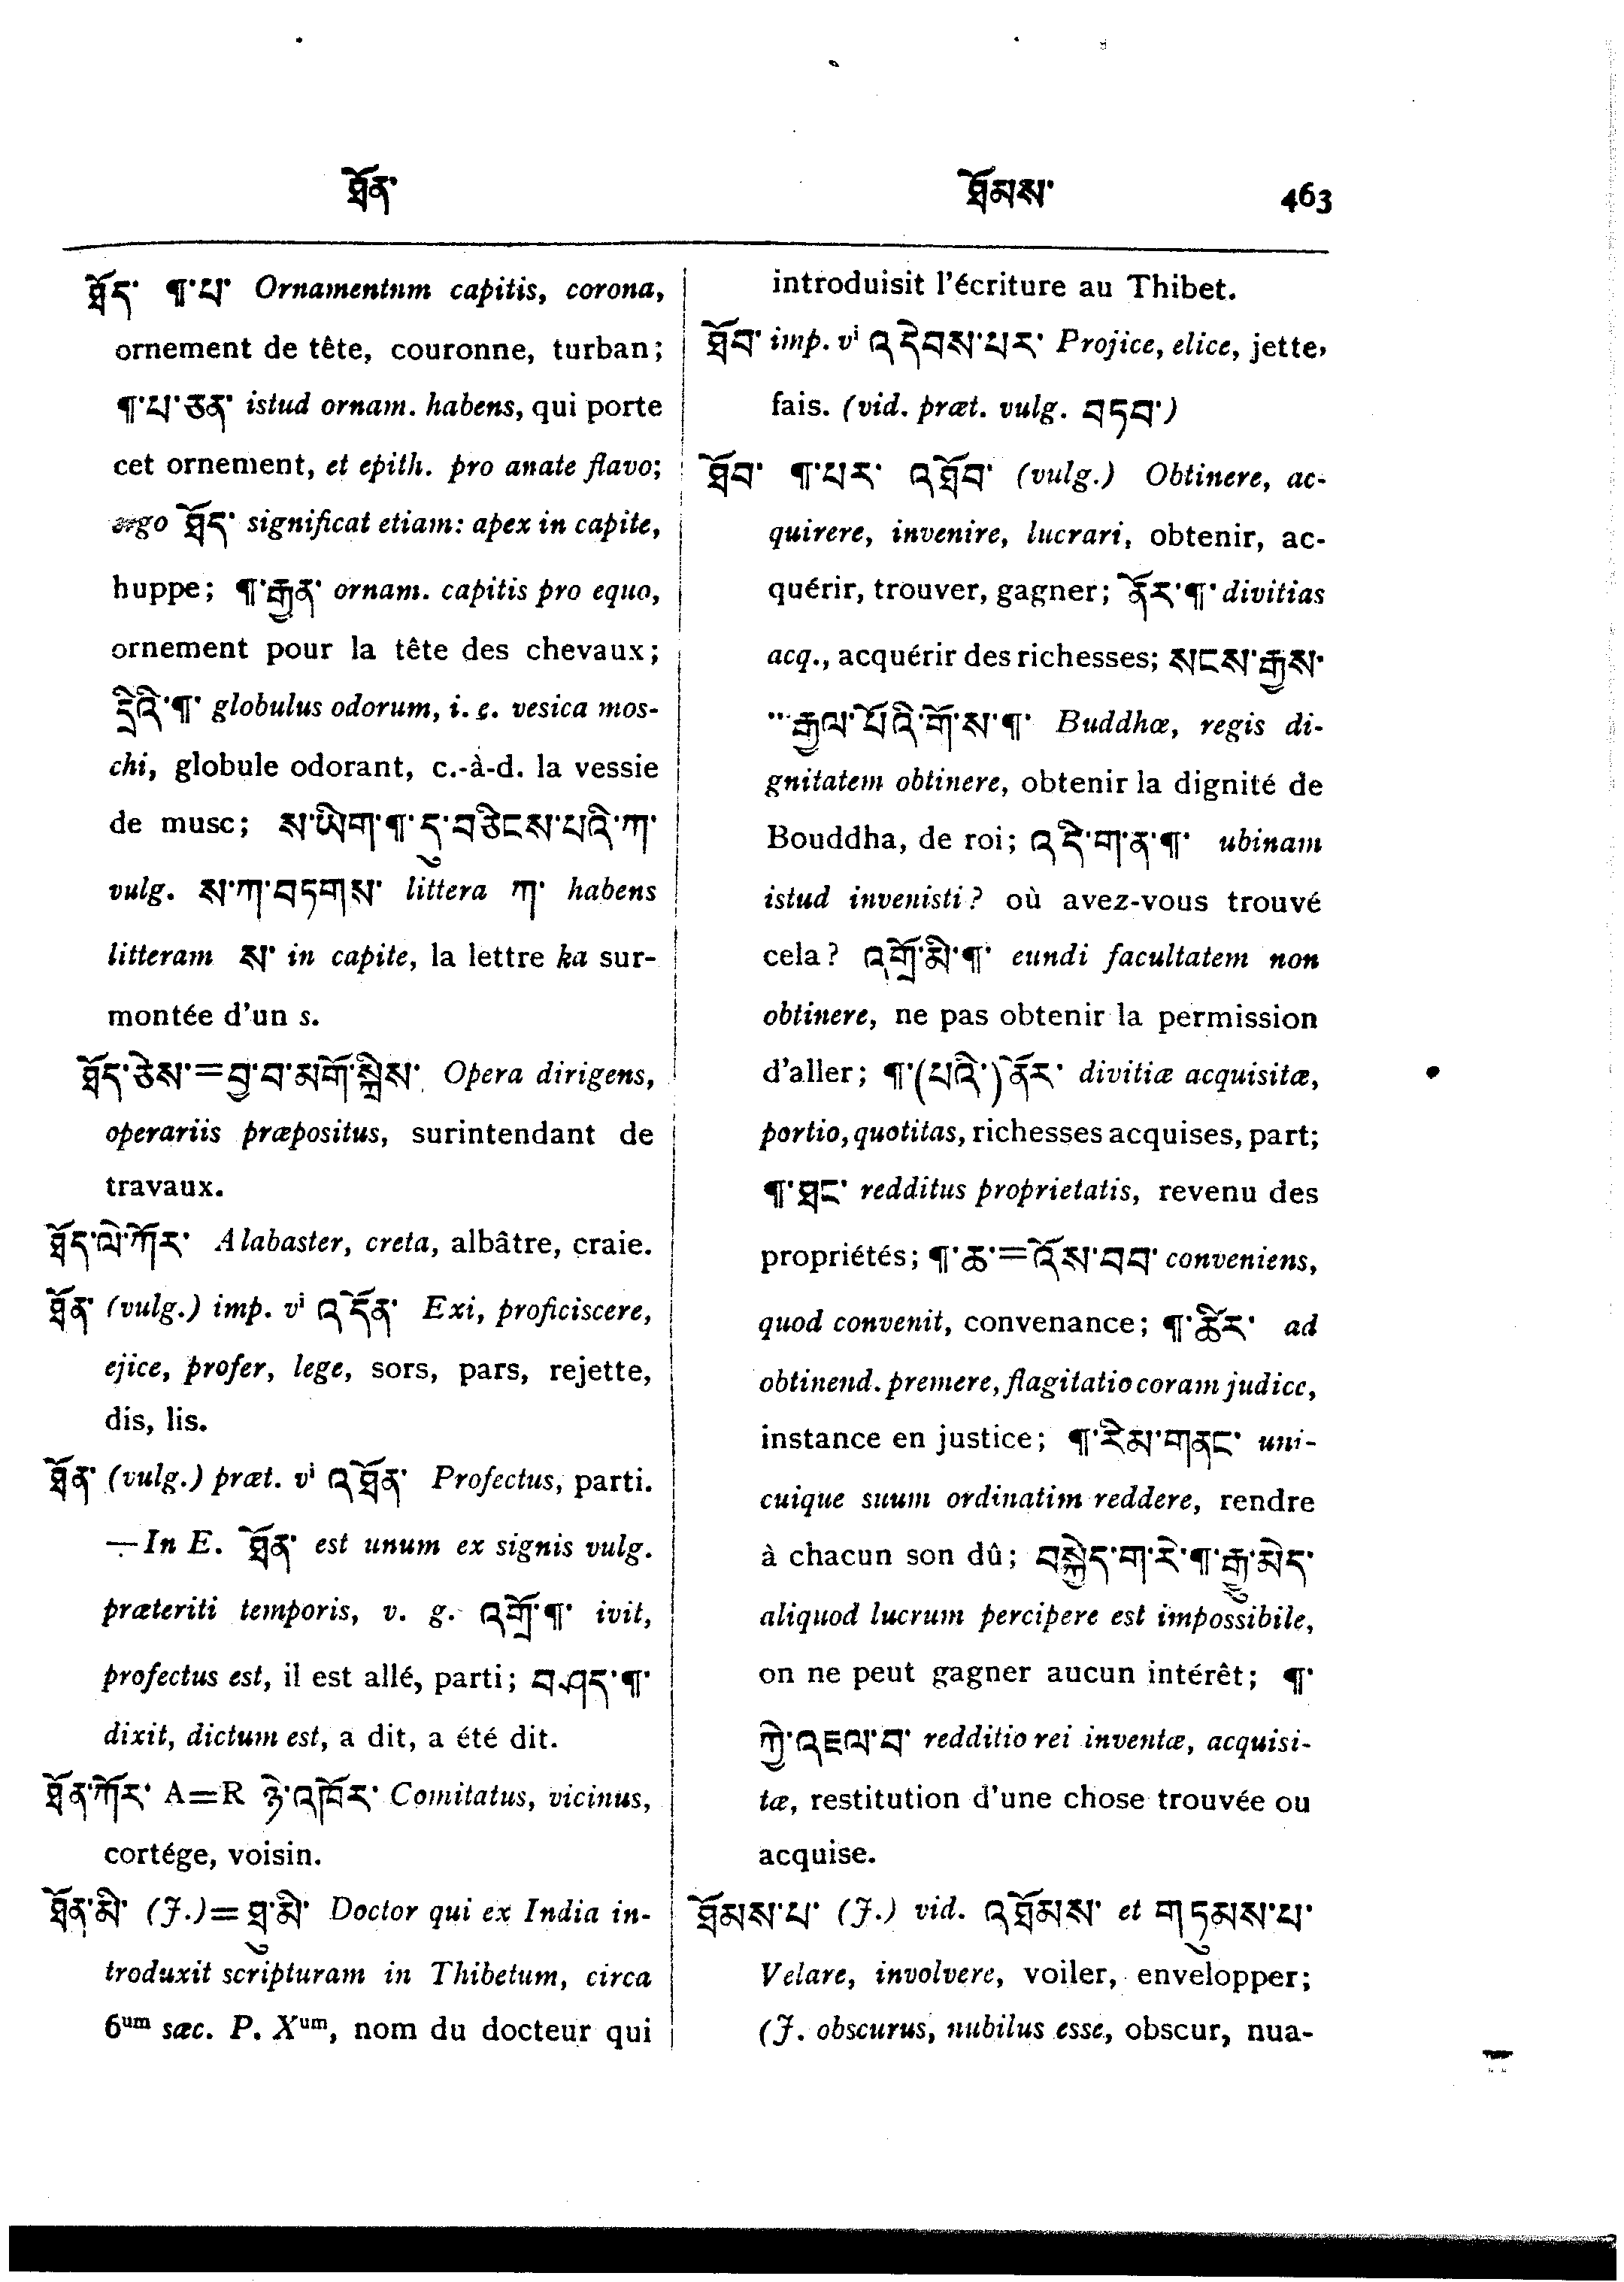 ཐོན་ ཐོམས་ 463
ཐོད་ ¶་པ་ Ornamentum capitis, corona,
ornement de tête, couronne, turban;
¶་པ་ཅན་ istud ornam. habens, qui porte
cet ornement, et epith. pro anate flavo;
ergo ཐོད་ significat etiam: apex in capite,
huppe; ¶་རྒྱན་ ornam. capitis pro equo,
ornement pour la tête des chevaux;
དྲིའི་¶་ globulus odorum, i. e. vesica mos-
chi, globule odorant, c.-à-d. la vessie
de musc; ས་ཡིག་¶་དུ་བཅིངས་པའི་ཀ་
vulg. ས་ཀ་བཏགས་ littera ཀ་ habens
litteram ས་ in capite, la lettre ka sur-
montée d'un s.
ཐོད་ཅེས་=བྱ་བ་མགོ་སྐྲིས་ Opera dirigens,
operariis præpositus, surintendant de
travaux.
ཐོད་ལེ་ཀོར་ Alabaster, creta, albâtre, craie.
ཐོན་ (vulg.) imp. vi འདོན་ Exi, proficiscere,
ejice, profer, lege, sors, pars, rejette,
dis, lis.
ཐོན་ (vulg.) præt. vi འཐོན་ Profectus, parti.
—In E. ཐོན་ est unum ex signis vulg.
præteriti temporis, v. g. འགྲོ་¶་ ivit,
profectus est, il est allé, parti; བཤད་¶་
dixit, dictum est, a dit, a été dit.
ཐོན་ཀོར་ A=R ཉེ་འཁོར་ Comitatus, vicinus,
cortége, voisin.
ཐོན་མི་ (J.)=ཐུ་མི་ Doctor qui ex India in-
troduxit scripturam in Thibetum, circa
6um sæc. P. Xum, nom du docteur qui
introduisit l'écriture au Thibet.
ཐོབ་ imp. vi འདེབས་པར་ Projice, elice, jette,
fais. (vid. præt. vulg. བཏབ་)
ཐོབ་ ¶་པར་ འཐོབ་ (vulg.) Obtinere, ac-
quirere, invenire, lucrari, obtenir, ac-
quérir, trouver, gagner; ནོར་¶་ divitias
acq., acquérir des richesses; སངས་རྒྱས་
"རྒྱལ་པོའི་གོ་ས་¶་ Buddhæ, regis di-
gnitatem obtinere, obtenir la dignité de
Bouddha, de roi; འདི་ག་ན་¶་ ubinam
istud invenisti? où avez-vous trouvé
cela? འགྲོ་མི་¶་ eundi facultatem non
obtinere, ne pas obtenir la permission
d'aller; ¶་(པའི་)ནོར་ divitiæ acquisitæ,
portio, quotitas, richesses acquises, part;
¶་ཐང་ redditus proprietatis, revenu des
propriétés; ¶་ཆ་=འོས་བབ་ conveniens,
quod convenit, convenance; ¶་ཚིར་ ad
obtinend. premere, flagitatio coram judice,
instance en justice; ¶་རིམ་གནང་ uni-
cuique suum ordinatim reddere, rendre
à chacun son dû; བསྐྱེད་ག་རེ་¶་རྒྱུ་མེད་
aliquod lucrum percipere est impossibile,
on ne peut gagner aucun intérêt; ¶་
ཀྱི་འཇལ་བ་ redditio rei inventæ, acquisi-
tæ, restitution d'une chose trouvée ou
acquise.
ཐོམས་པ་ (J.) vid. འཐོམས་ et གཏུམས་པ་
Velare, involvere, voiler, envelopper;
(J. obscurus, nubilus esse, obscur, nua-